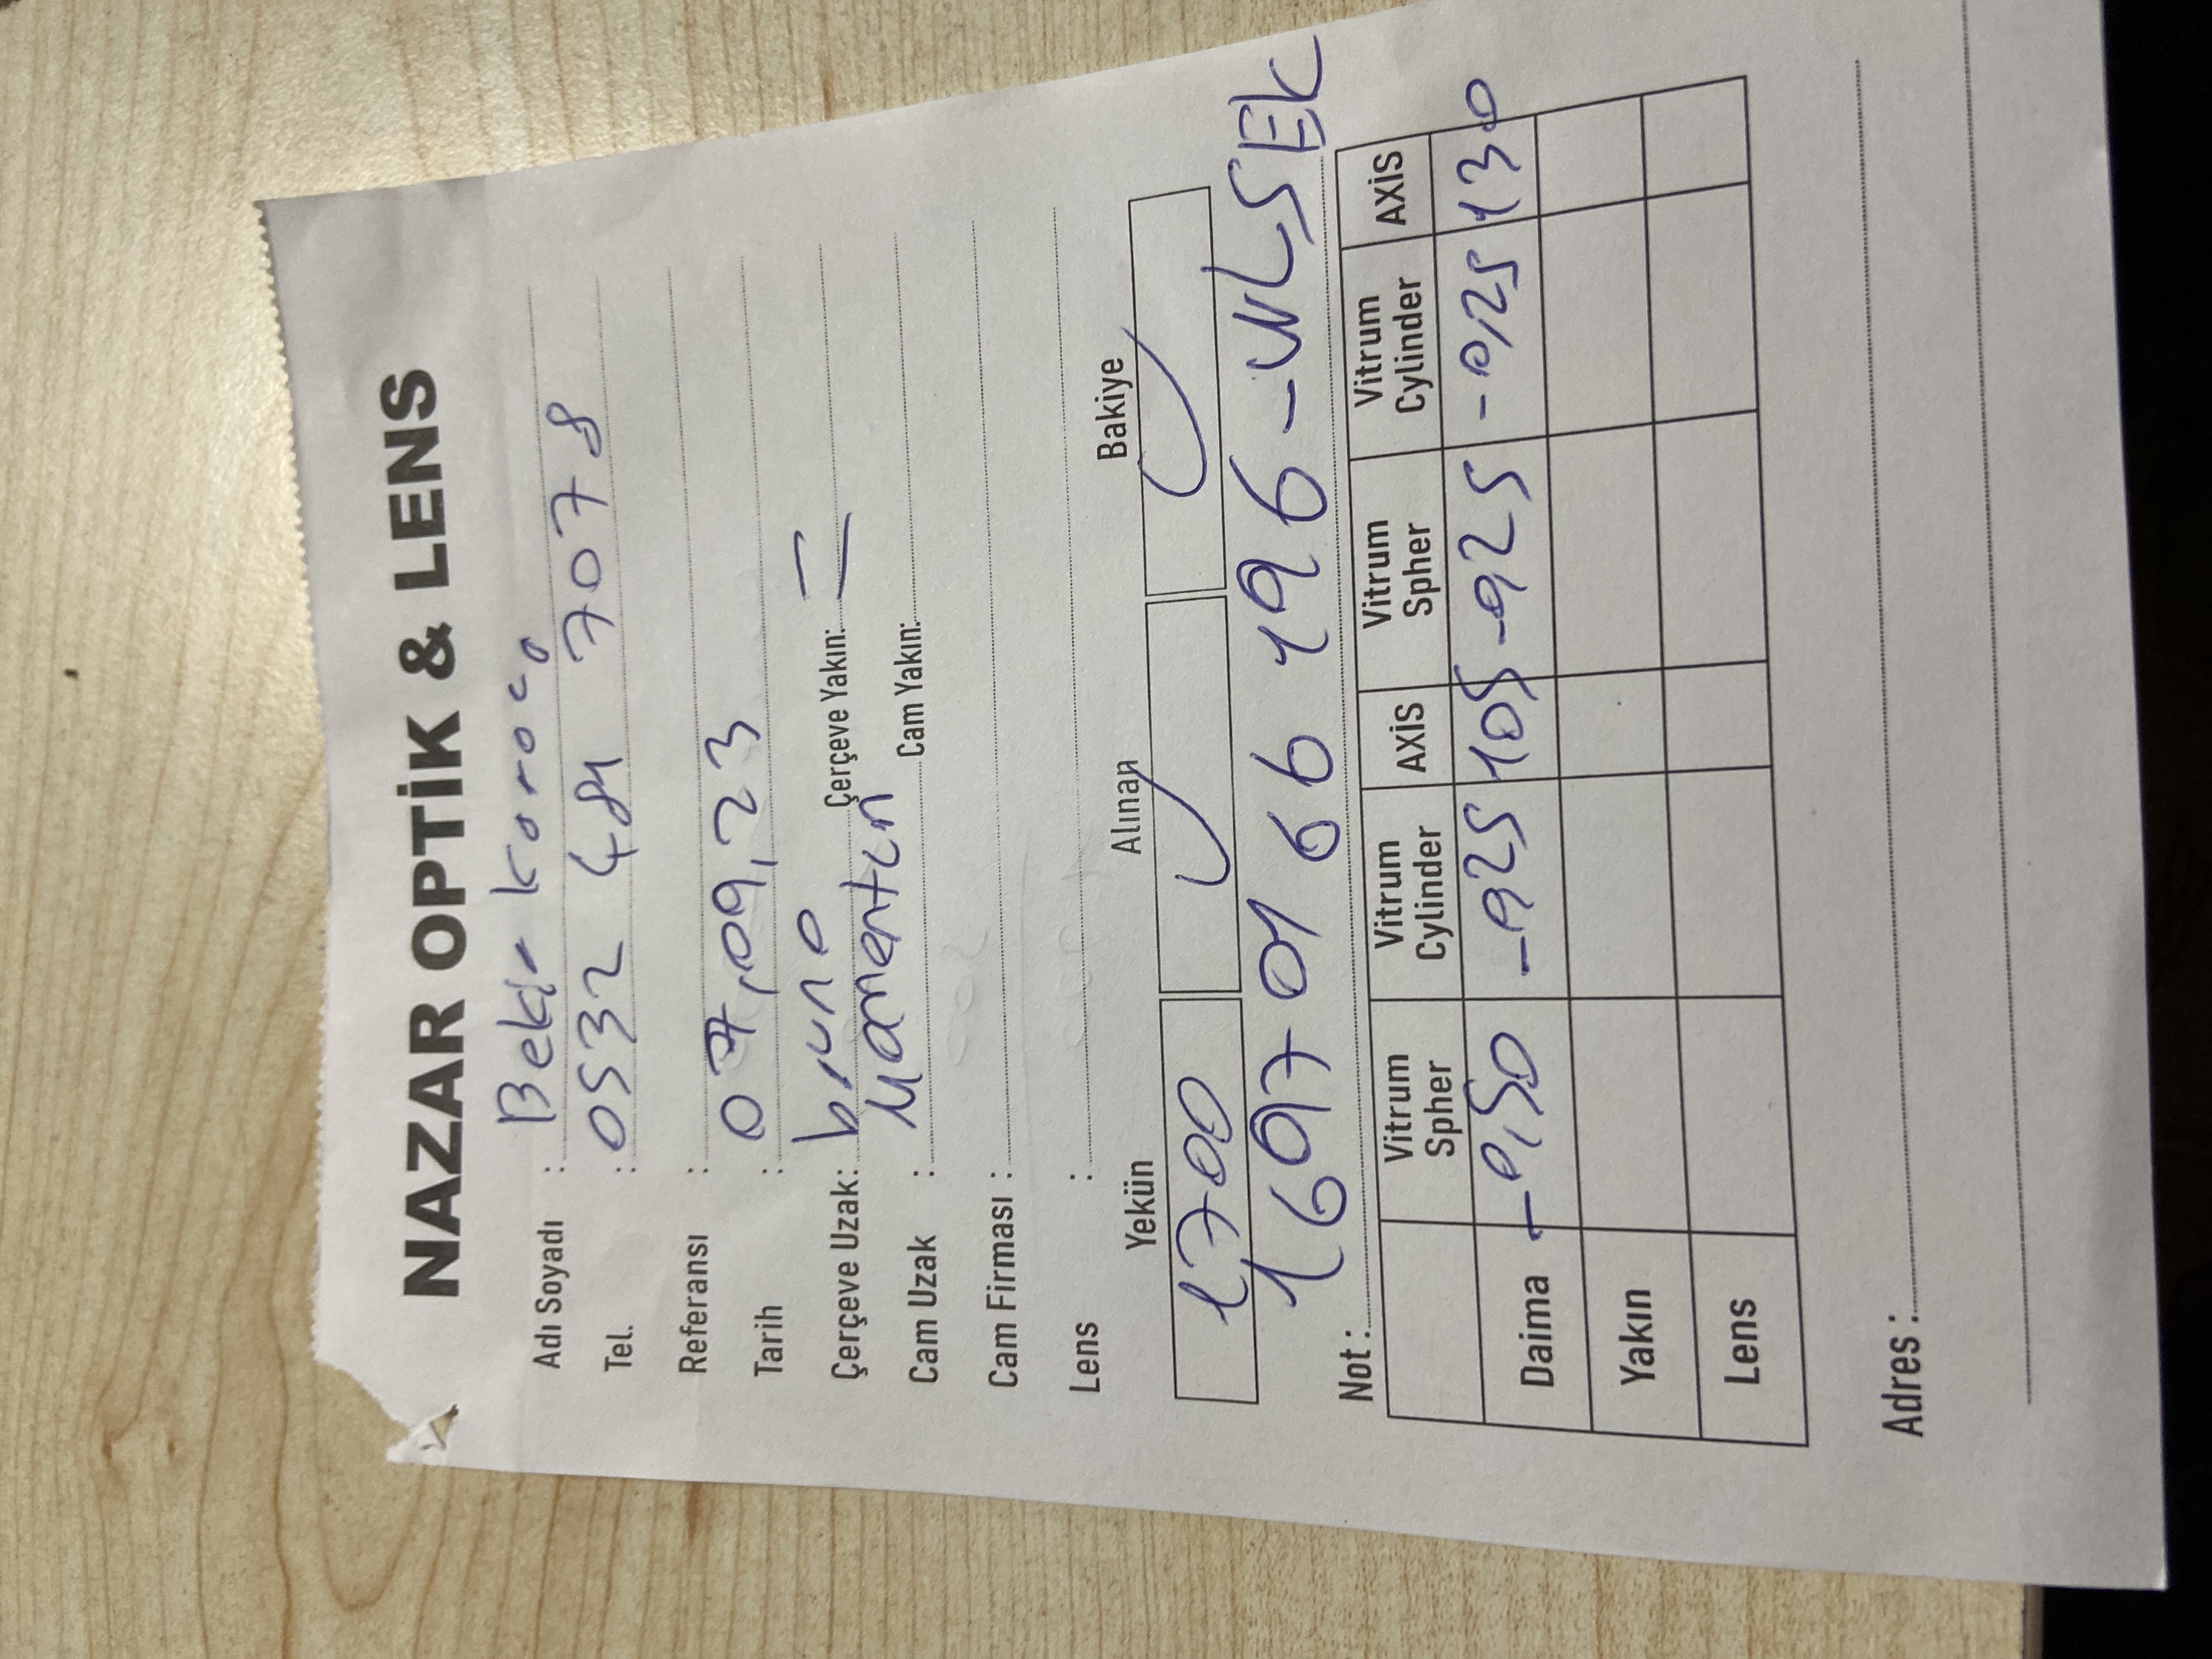 NAZAR OPTİK & LENS
Adı Soyadı : Bekir Karaca
Tel. : 0532 481 7078
Referansı :
Tarih : 07,09,23
Çerçeve Uzak: bruno Çerçeve Yakın: =
Cam Uzak : Cam Yakın:
Cam Firması :
Lens :
Yekün Alınan Bakiye
1700 ✓ ✓
16970166196-
Not :
Vitrum Spher Vitrum Cylinder AXİS Vitrum Spher Vitrum Cylinder AXİS
Daima -0,50 -0,25 105 -0,25 -0,25 130
Yakın
Lens
Adres :